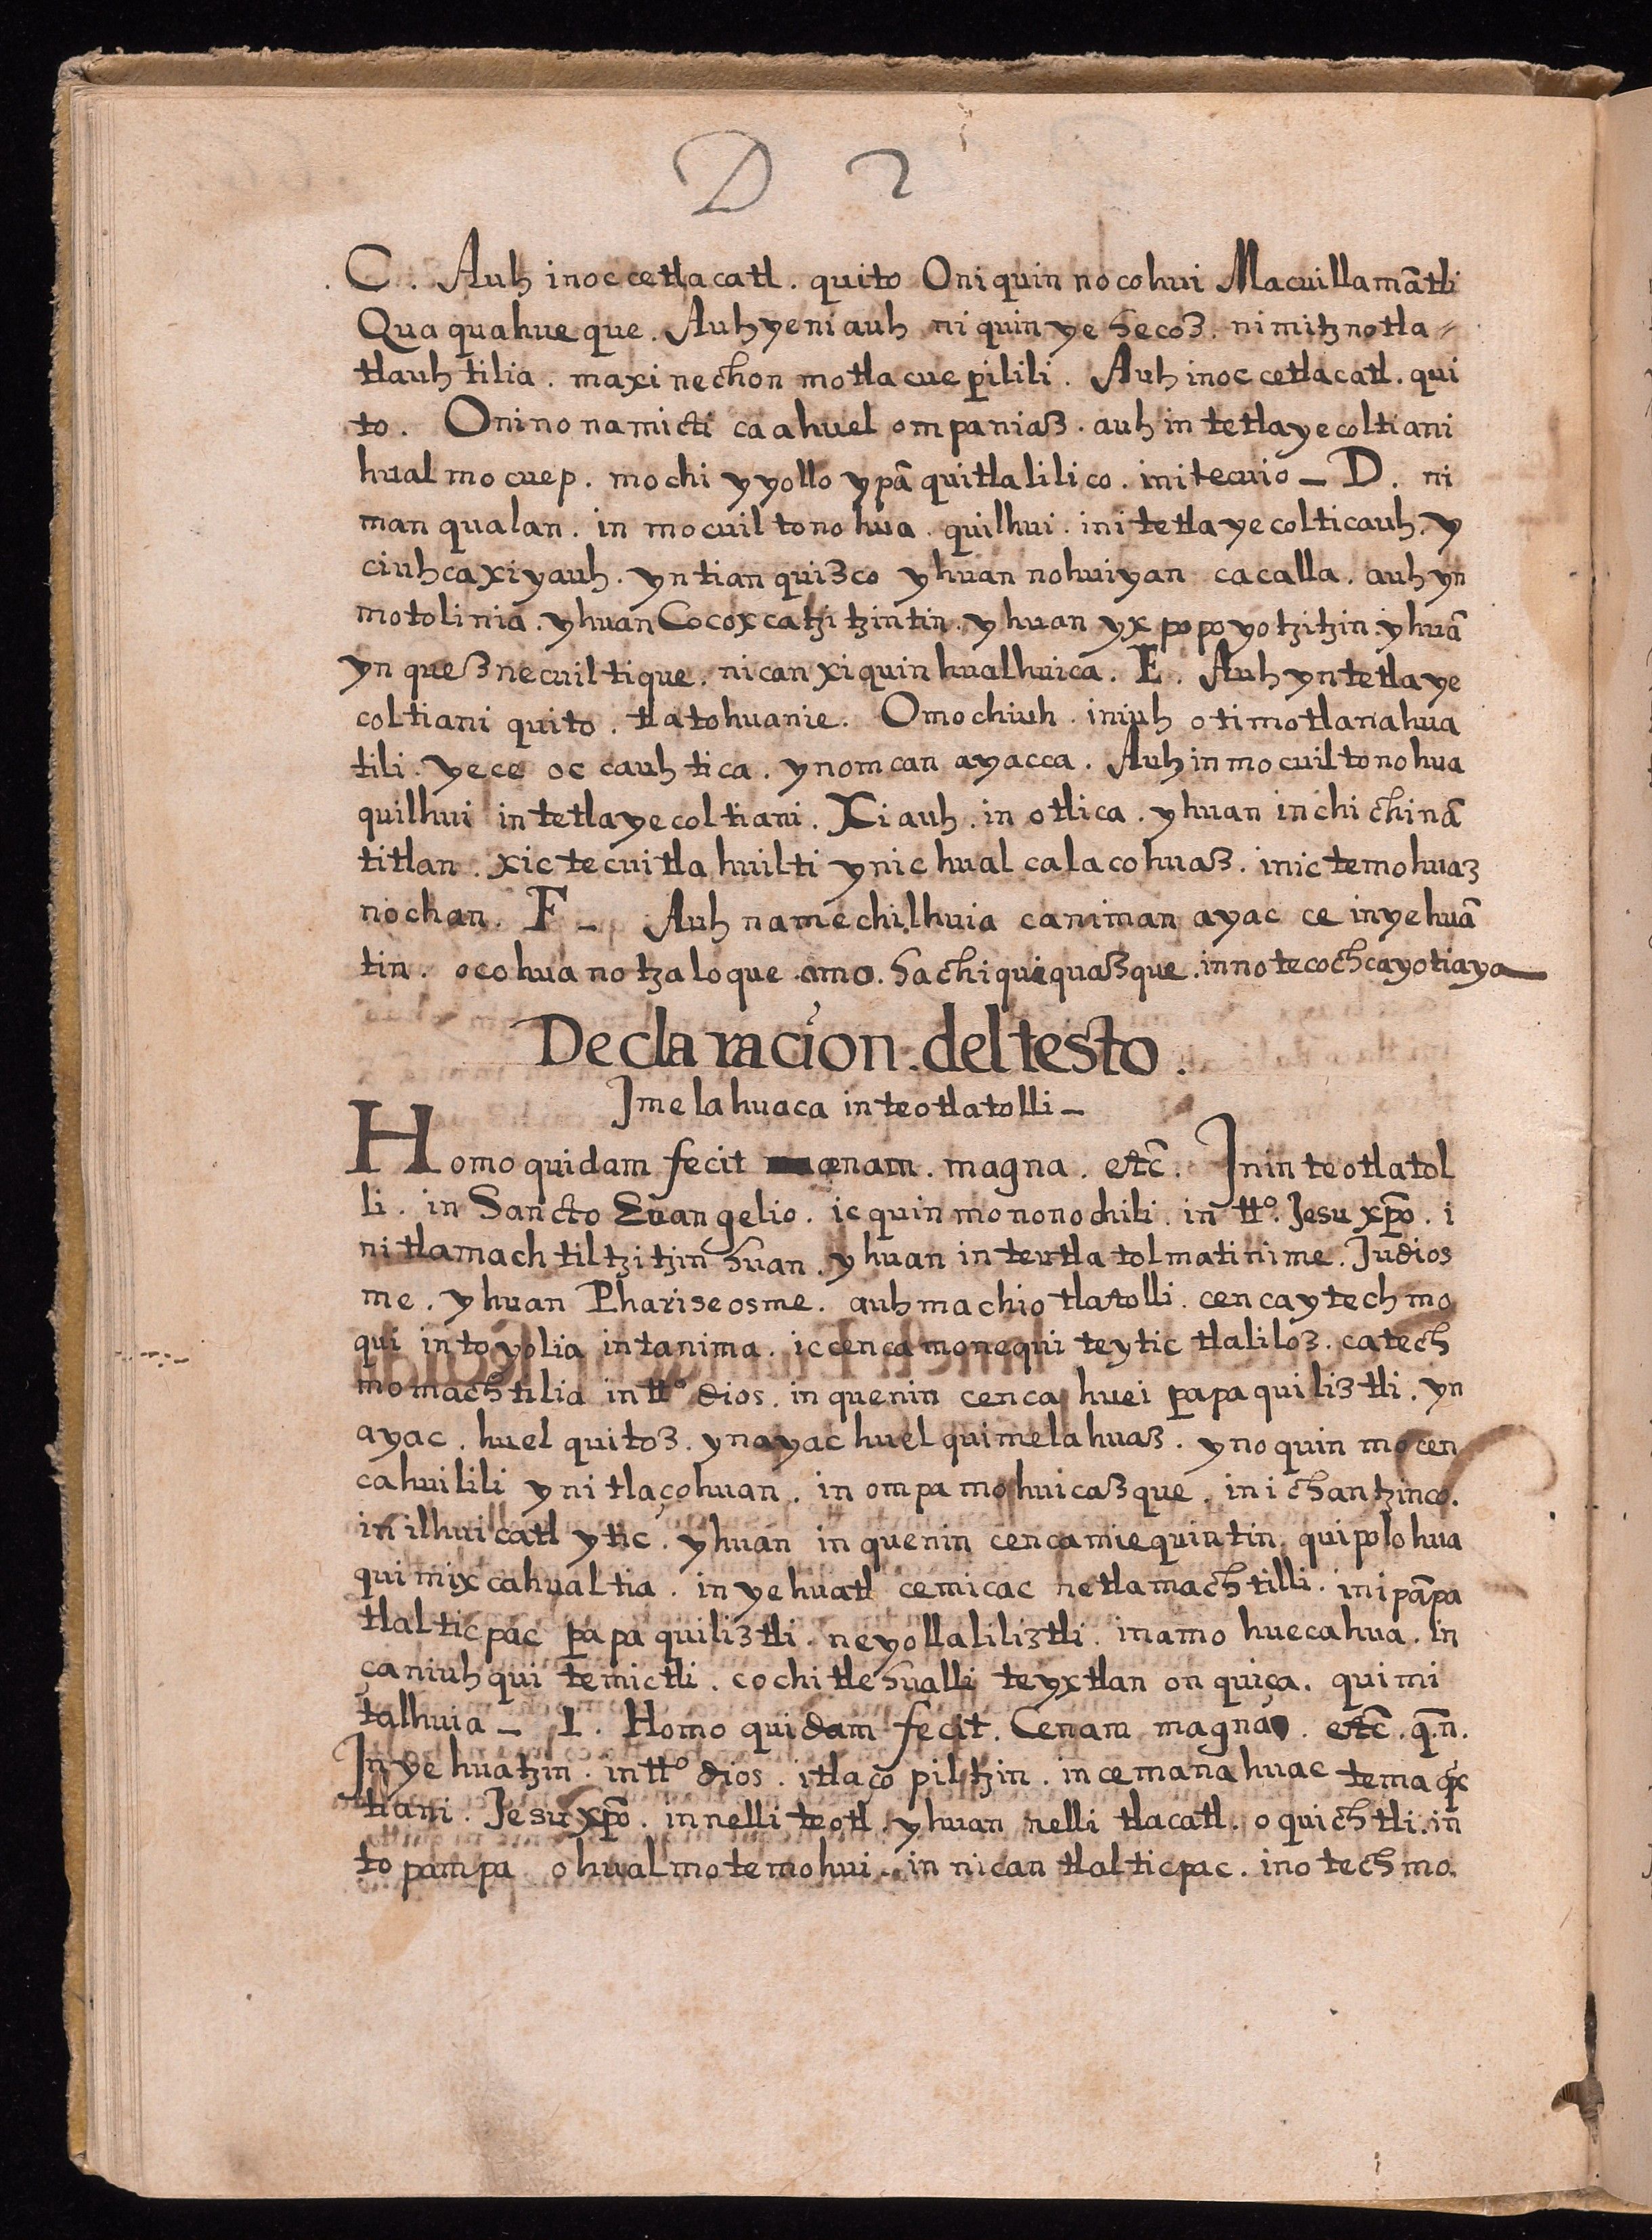 D 2
. C. Auh inoc cetlacatl. quito Oniquin nocohui Macuillamãtli
Quaquahueque. Auh yeniauh niquinyehecoz. nimitznotla=
tlauhtilia. maxinechonmotlacuepilili. Auh inoc cetlacatl. qui
to. Oninonamicti caahuel ompaniaz. auh in tetlayecoltiani
hualmocuep. mochi yyollo ypã quitlalilico. initecuio _ D. ni
man qualan. in mocuiltonohua. quilhui. initetlayecolticauh. y
ciuhcaxiyauh. yn tianquizco yhuan nohuiyan cacalla. auh yn
motolinia. yhuan Cocoxcatzitzintin. yhuan yxpopoyotzitzin. yhuã
yn queznecuiltique. nican xiquinhualhuica. E. Auh yntetlaye
coltiani quito. tlatohuanie. Omochiuh. iniuh otimotlanahua
tili. yece oc cauhtica. ynomcan ayacca. Auh in mocuiltonohua
quilhui in tetlayecoltiani. Xiauh. in otlica. yhuan inchichinã
titlan. xictecuitlahuilti ynic hualcalacohuaz. inic temohuaz
nochan. F _ Auh namechilhuia caniman ayac ce inyehuã
tin. ocohuanotzaloque amo. hachiquiquazque. innotecochcayotiaya
Declaracion. del testo.
Jmelahuaca inteotlatolli _
Homo quidam fecit cenam. magna. etc̃. Jnin teotlatol
li. in Sancto Euangelio. ic quinmononochili. in tt.º Jesu xp̃o. i
nitlamachtiltzitzinhuan. yhuan in teutlatolmatinime. Judios
me. yhuan Phariseosme. auh machiotlatolli. cencaytechmo
qui intoyolia intanima. iccenca monequi teytic tlaliloz. catech
momachtilia in ttº dios. in quenin cenca huei papaquiliztli. yn
ayac. huel quitoz. ynayac huel quimelahuaz. ynoquin mocen
cahuilili ynitlaçohuan. in ompa mohuicazque. in ichantzinco.
in ilhuicatl ytic. yhuan in quenin cencamiequintin quipolohua
quimixcahualtia. inyehuatl cemicac netlamachtilli. inipãpa
tlalticpac papaquiliztli. neyollaliliztli. inamo huecahua. in
çaniuhqui temictli. cochitlehualli teyxtlan onquiça. quimi
talhuia _ 1. Homo quidam fecit. Cenam magna. etc̃. q.̃n.
Jnyehuatzin. in ttº dios. itlaço piltzin. in cemanahuac temaq̃x
tiani. Jesu xp̃o. innelli teotl. yhuan nelli tlacatl. oquichtli. in
topampa ohualmotemohui. in nican tlalticpac. inotechmo.